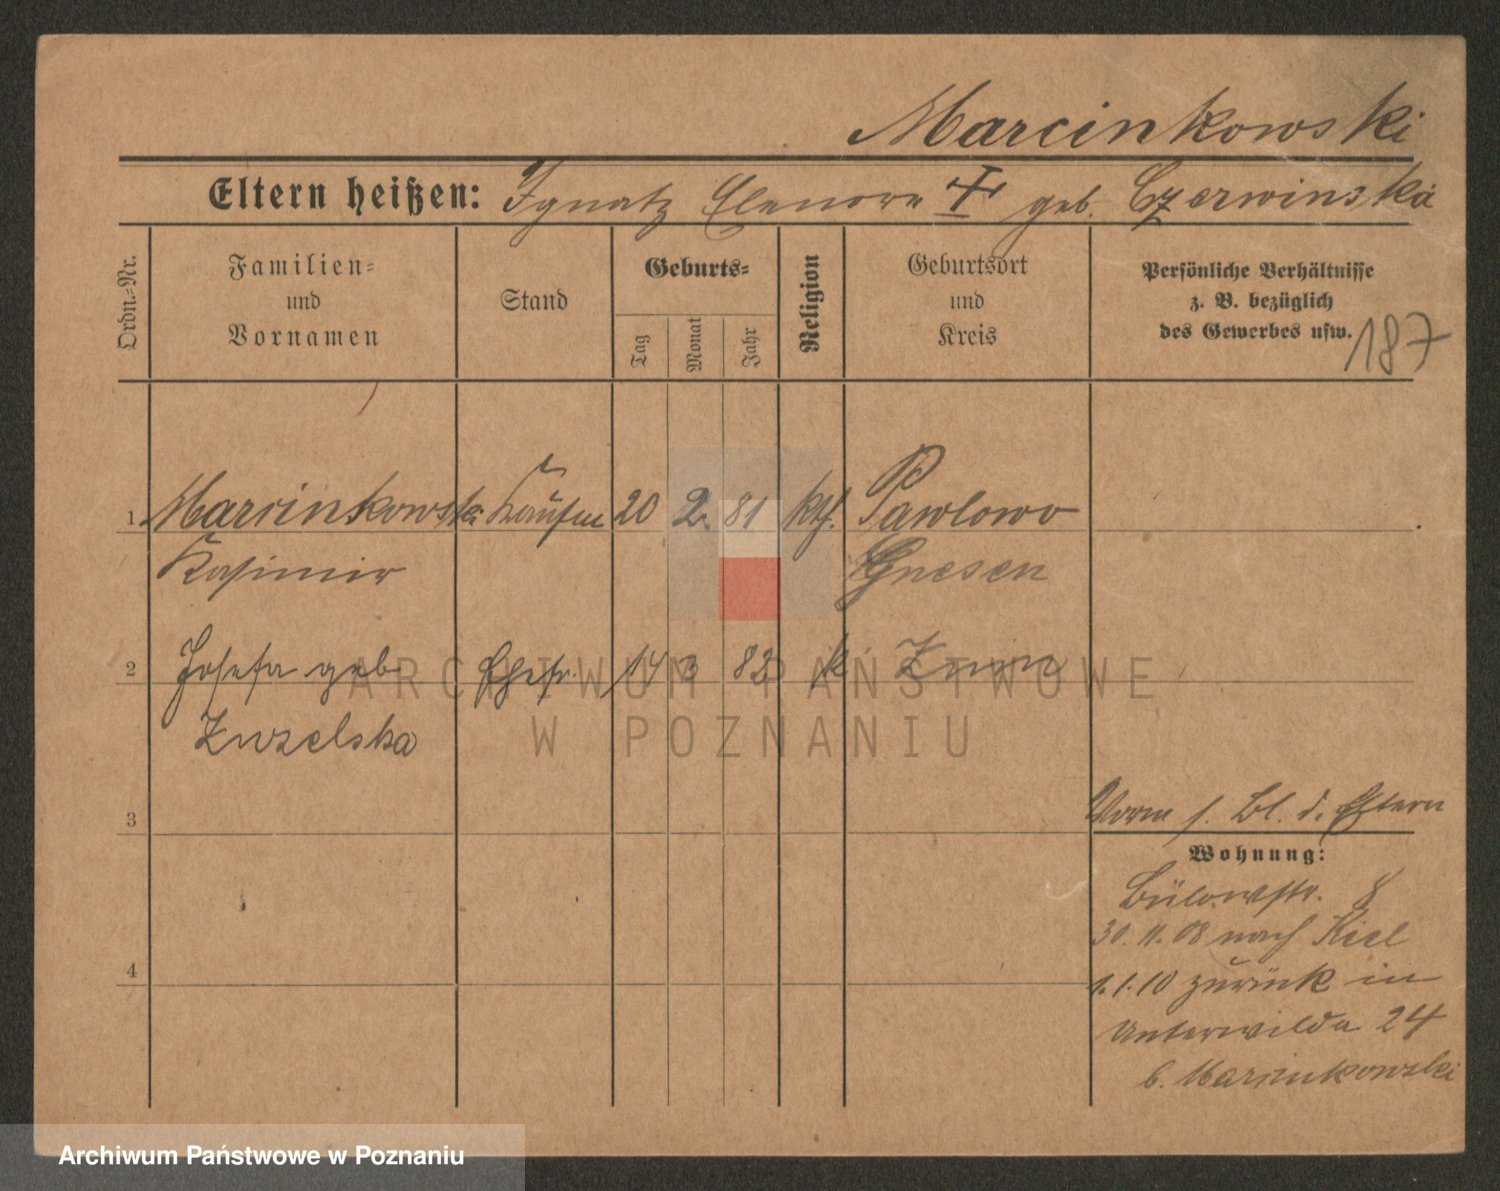 Marcinkowski
Eltern heißen: Ignatz Elenore geb. Czerwinska
Ordn.-Nr.
Familien-
und
Vornamen
Stand
Geburts-
Tag
Monat
Jahr
Religion
Geburtsort
und
Kreis
Persönliche Verhältnisse
z. B. bezüglich
des Gewerbes usw.
187
1 Marcinkowski Kaufm 20 2. 81 kth. Pawlowo
Kasimir Gnesen
2 Josefa geb. Ehefr. 14 3 82 k Znin
3
4
Vorm s. Bl. d. Eltern
Wohnung:
Bülowstr. 8
30.11.08 nach Kiel
1.1.10 zurück in
Unterwilda 24
b. Marcinkowski
ARCHIWUM PAŃSTWOWE
W POZNANIU
Archiwum Państwowe w Poznaniu